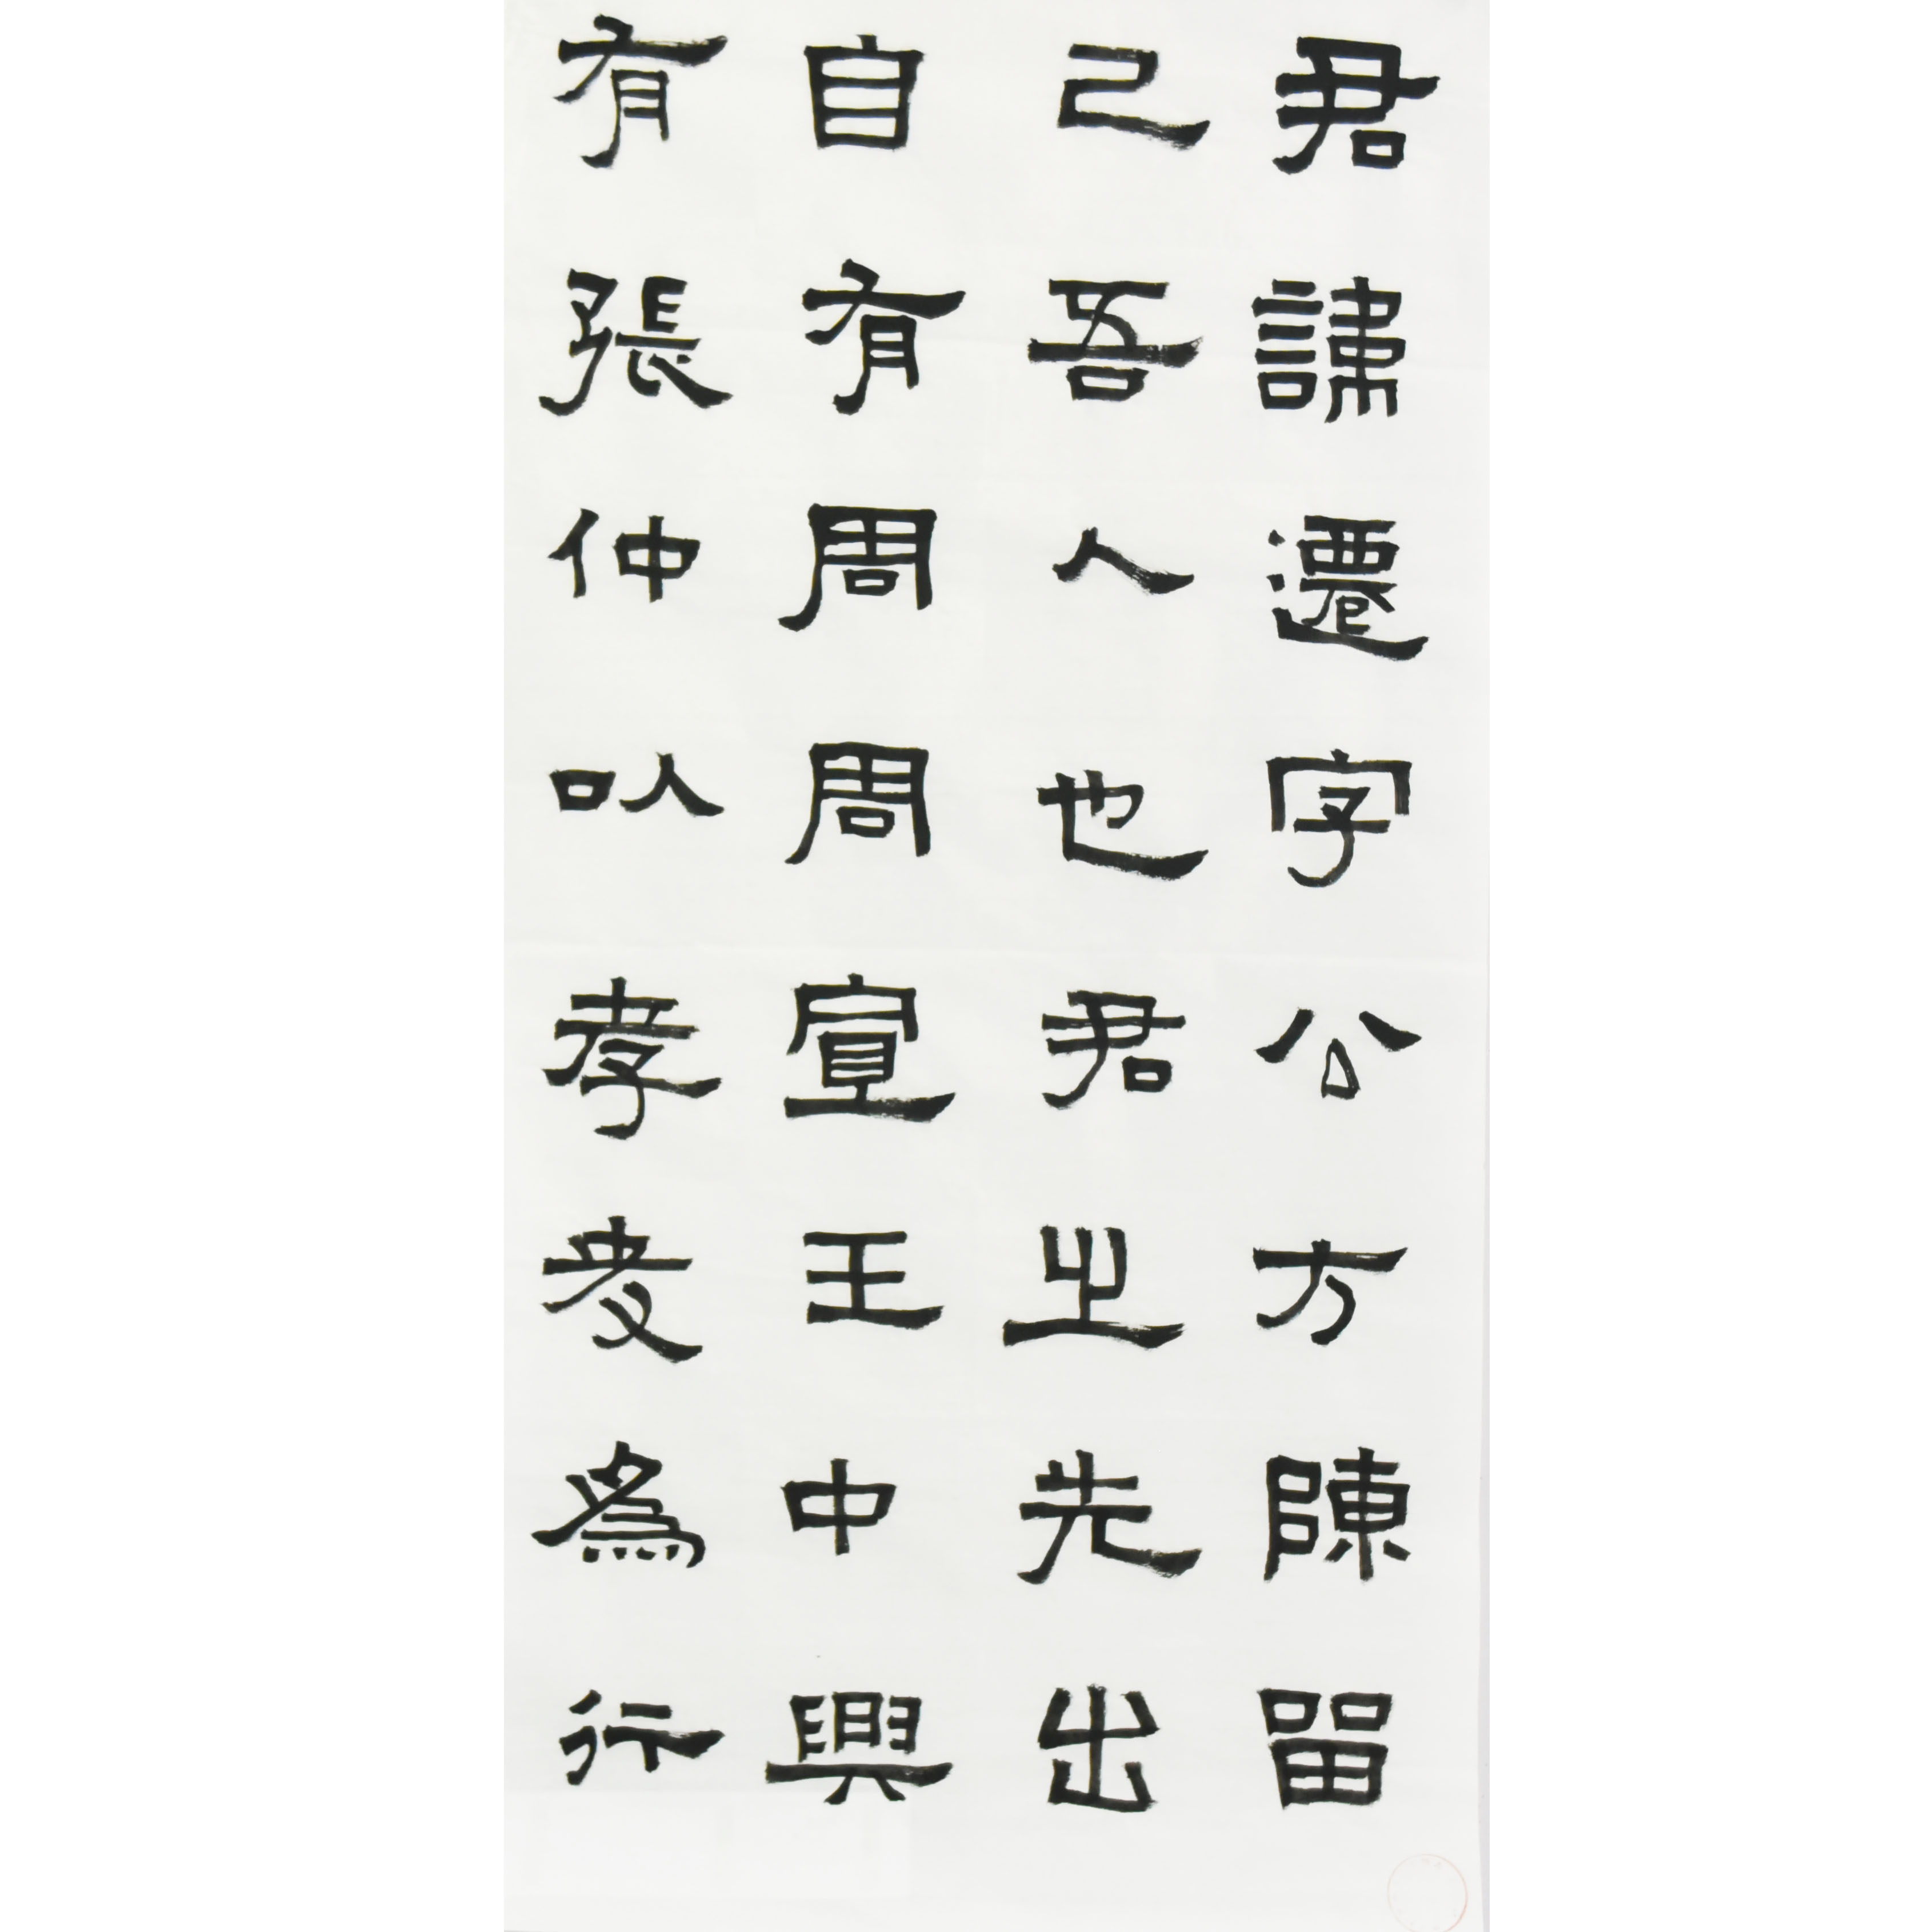 君諱遷字公方陳留
己吾人也君之先出
自有周周宣王中興
有張仲以孝友為行